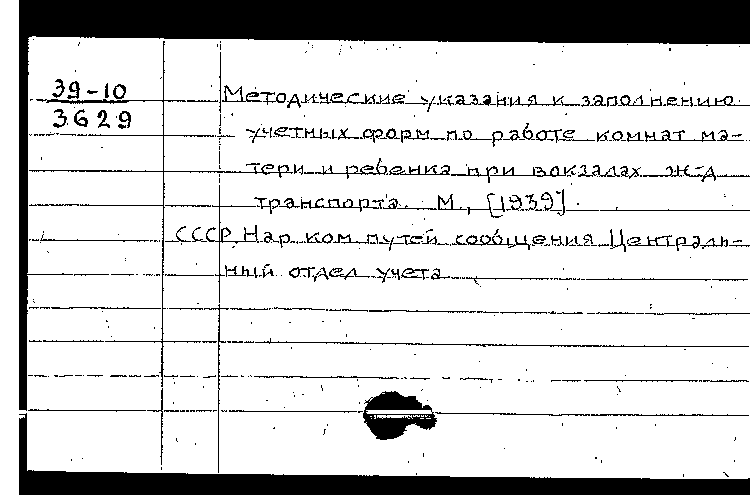 39-10
3629
Методические указания к заполнению
учетных форм по работе комнат ма-
тери и ребенка при вокзалах ж-д
транспорта. М., [1939].
СССР. Нар. ком. путей сообщения. Централь-
ный отдел учета.